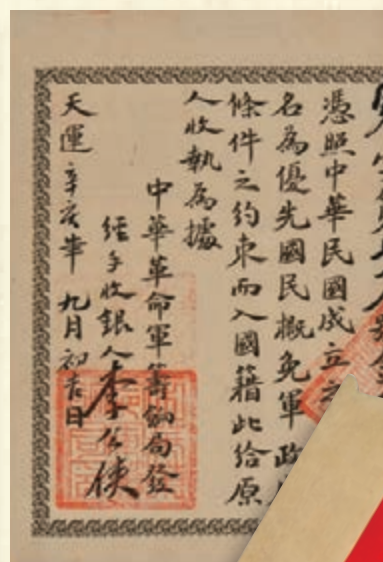 憑照中華民國成立之
名為優先國民概免軍政
條件之約束而入國籍此給原
人收執為據
中華革命軍籌餉局發
經手收銀人李公俠
天運辛亥年九月初吉日